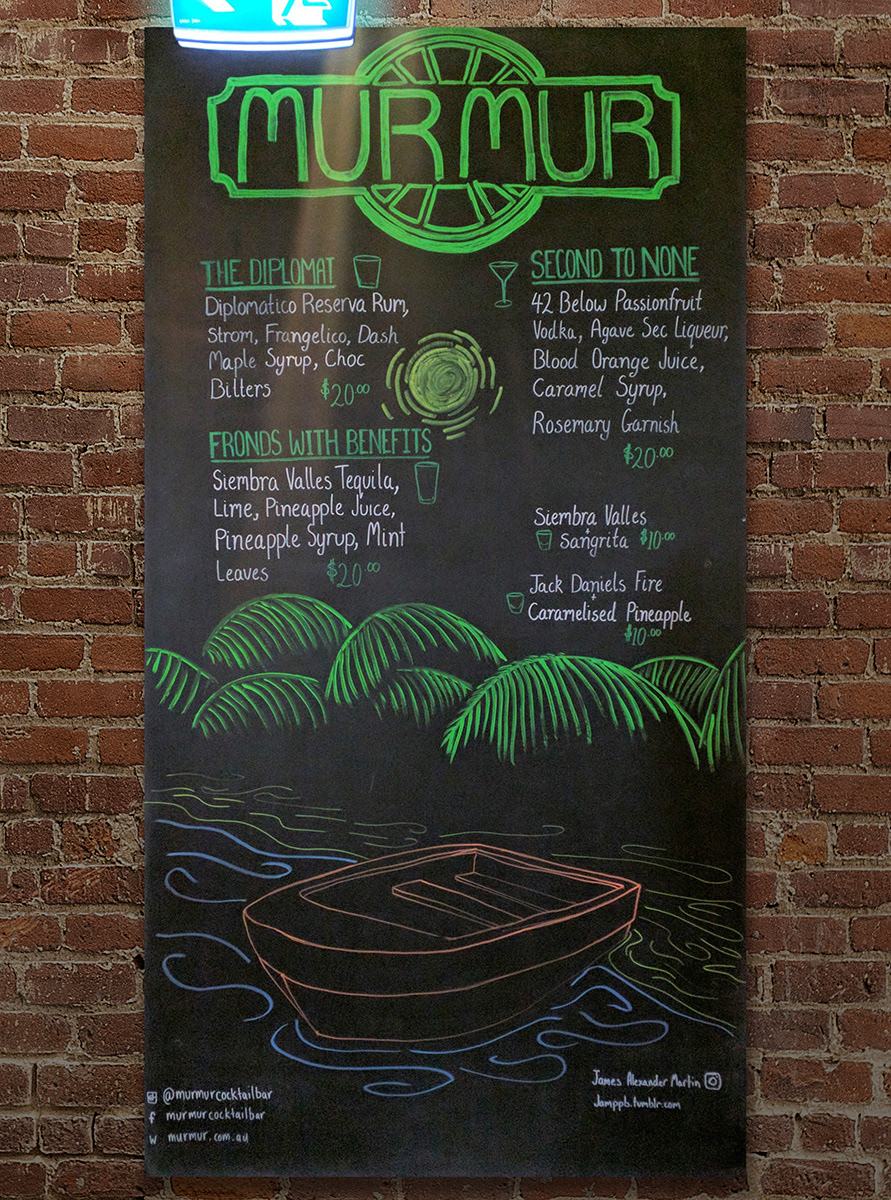 MURMUR
THE DIPLOMAT
Diplomatico Reserva Rum,
Strom, Frangelico, Dash
Maple Syrup, Choc
Bitters $20.00
FRONDS WITH BENEFITS
Siembra Valles Tequila,
Lime, Pineapple Juice,
Pineapple Syrup, Mint
Leaves $20.00
SECOND TO NONE
42 Below Passionfruit
Vodka, Agave Sec Liqueur,
Blood Orange Juice,
Caramel Syrup,
Rosemary Garnish
$20.00
Siembra Valles
+
Sangrita $10.00
Jack Daniels Fire
+
Caramelised Pineapple
$10.00
@murmurcocktailbar
f murmurcocktailbar
W murmur.com.au
James Alexander Martin
Jamppb.tumblr.com